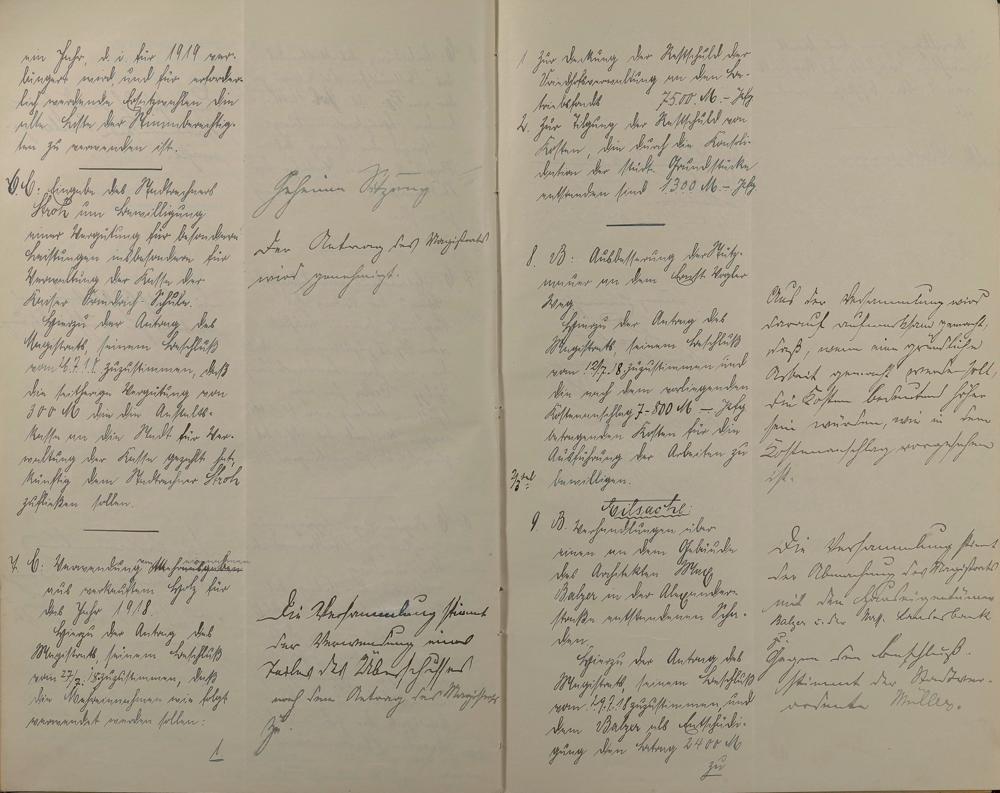 ein Jahr, d. i. für 1919 ver-
längert wird und für erforder-
lich werdende Ersatzwahlen die
alte Liste der Stimmberechtig-
ten zu verwenden ist.
6 C: Eingabe des Stadtrechners
Stroh um Bewilligung
einer Vergütung für besondere
Leistungen insbesondere für
Verwaltung der Kasse der
Kaiser Friedrich-Schule.
Hierzu der Antrag des
Magistrats, seinem Beschluß
vom 6.7.18 zuzustimmen, daß
die seitherige Vergütung von
300 M die die Anstalts-
kasse an die Stadt für Ver-
waltung der Kasse gezahlt hat,
künftig dem Stadtrechner Stroh
zufließen sollen.
Geheime Sitzung
Der Antrag des Magistrats
wird genehmigt.
7. C: Verwendung von Mehreinnahmen
aus verkauftem Holz für
das Jahr 1918
Hierzu der Antrag des
Magistrats seinem Beschluß
vom zuzustimmen, daß
die Mehreinnahmen wie folgt
verwendet werden sollen:
1
Die Versammlung stimmt
der Verwendung eines
Teiles des Überschusses
nach dem Antrag des Magistrats
zu.
1 Zur Deckung der Restschuld der
Friedhofsverwaltung an den Be-
triebsfonds 7500 M – Pfg
2. Zur Tilgung der Restschuld von
Kosten, die durch die Konsoli-
dation der städt. Grundstücke
entstanden sind 1300 M – Pfg
8. B: Ausbesserung der Stütz-
mauer an dem Ernst Vogler
Weg
Hierzu der Antrag des
Magistrats, seinem Beschluß
vom 12/7.18 zuzustimmen und
die nach dem vorliegenden
Kostenanschlag 7–800 M – Pfg
betragenden Kosten für die
Ausführung der Arbeiten zu
bewilligen.
Aus der Versammlung wird
darauf aufmerksam gemacht,
daß, wenn eine gründliche
Arbeit gemacht werden soll,
die Kosten bedeutend höher
sein würden, wie in dem
Kostenanschlag vorgesehen
ist.
Eilsache:
9 B. Verhandlungen über
einen an dem Gebäude
des Architekten Max
Balzer in der Alexander-
straße entstandenen Scha-
den.
Hierzu der Antrag des
Magistrats, seinem Beschluß
vom 29.7.18 zuzustimmen und
dem Balzer als Entschädi-
gung den Betrag 2400 M
zu
Die Versammlung stimmt
der Abmachung des Magistrats
mit den Hauseigentümern
Balzer u. der Nass. Landesbank
zu.
Gegen den Beschluß
stimmt der Stadtver-
ordnete Müller.